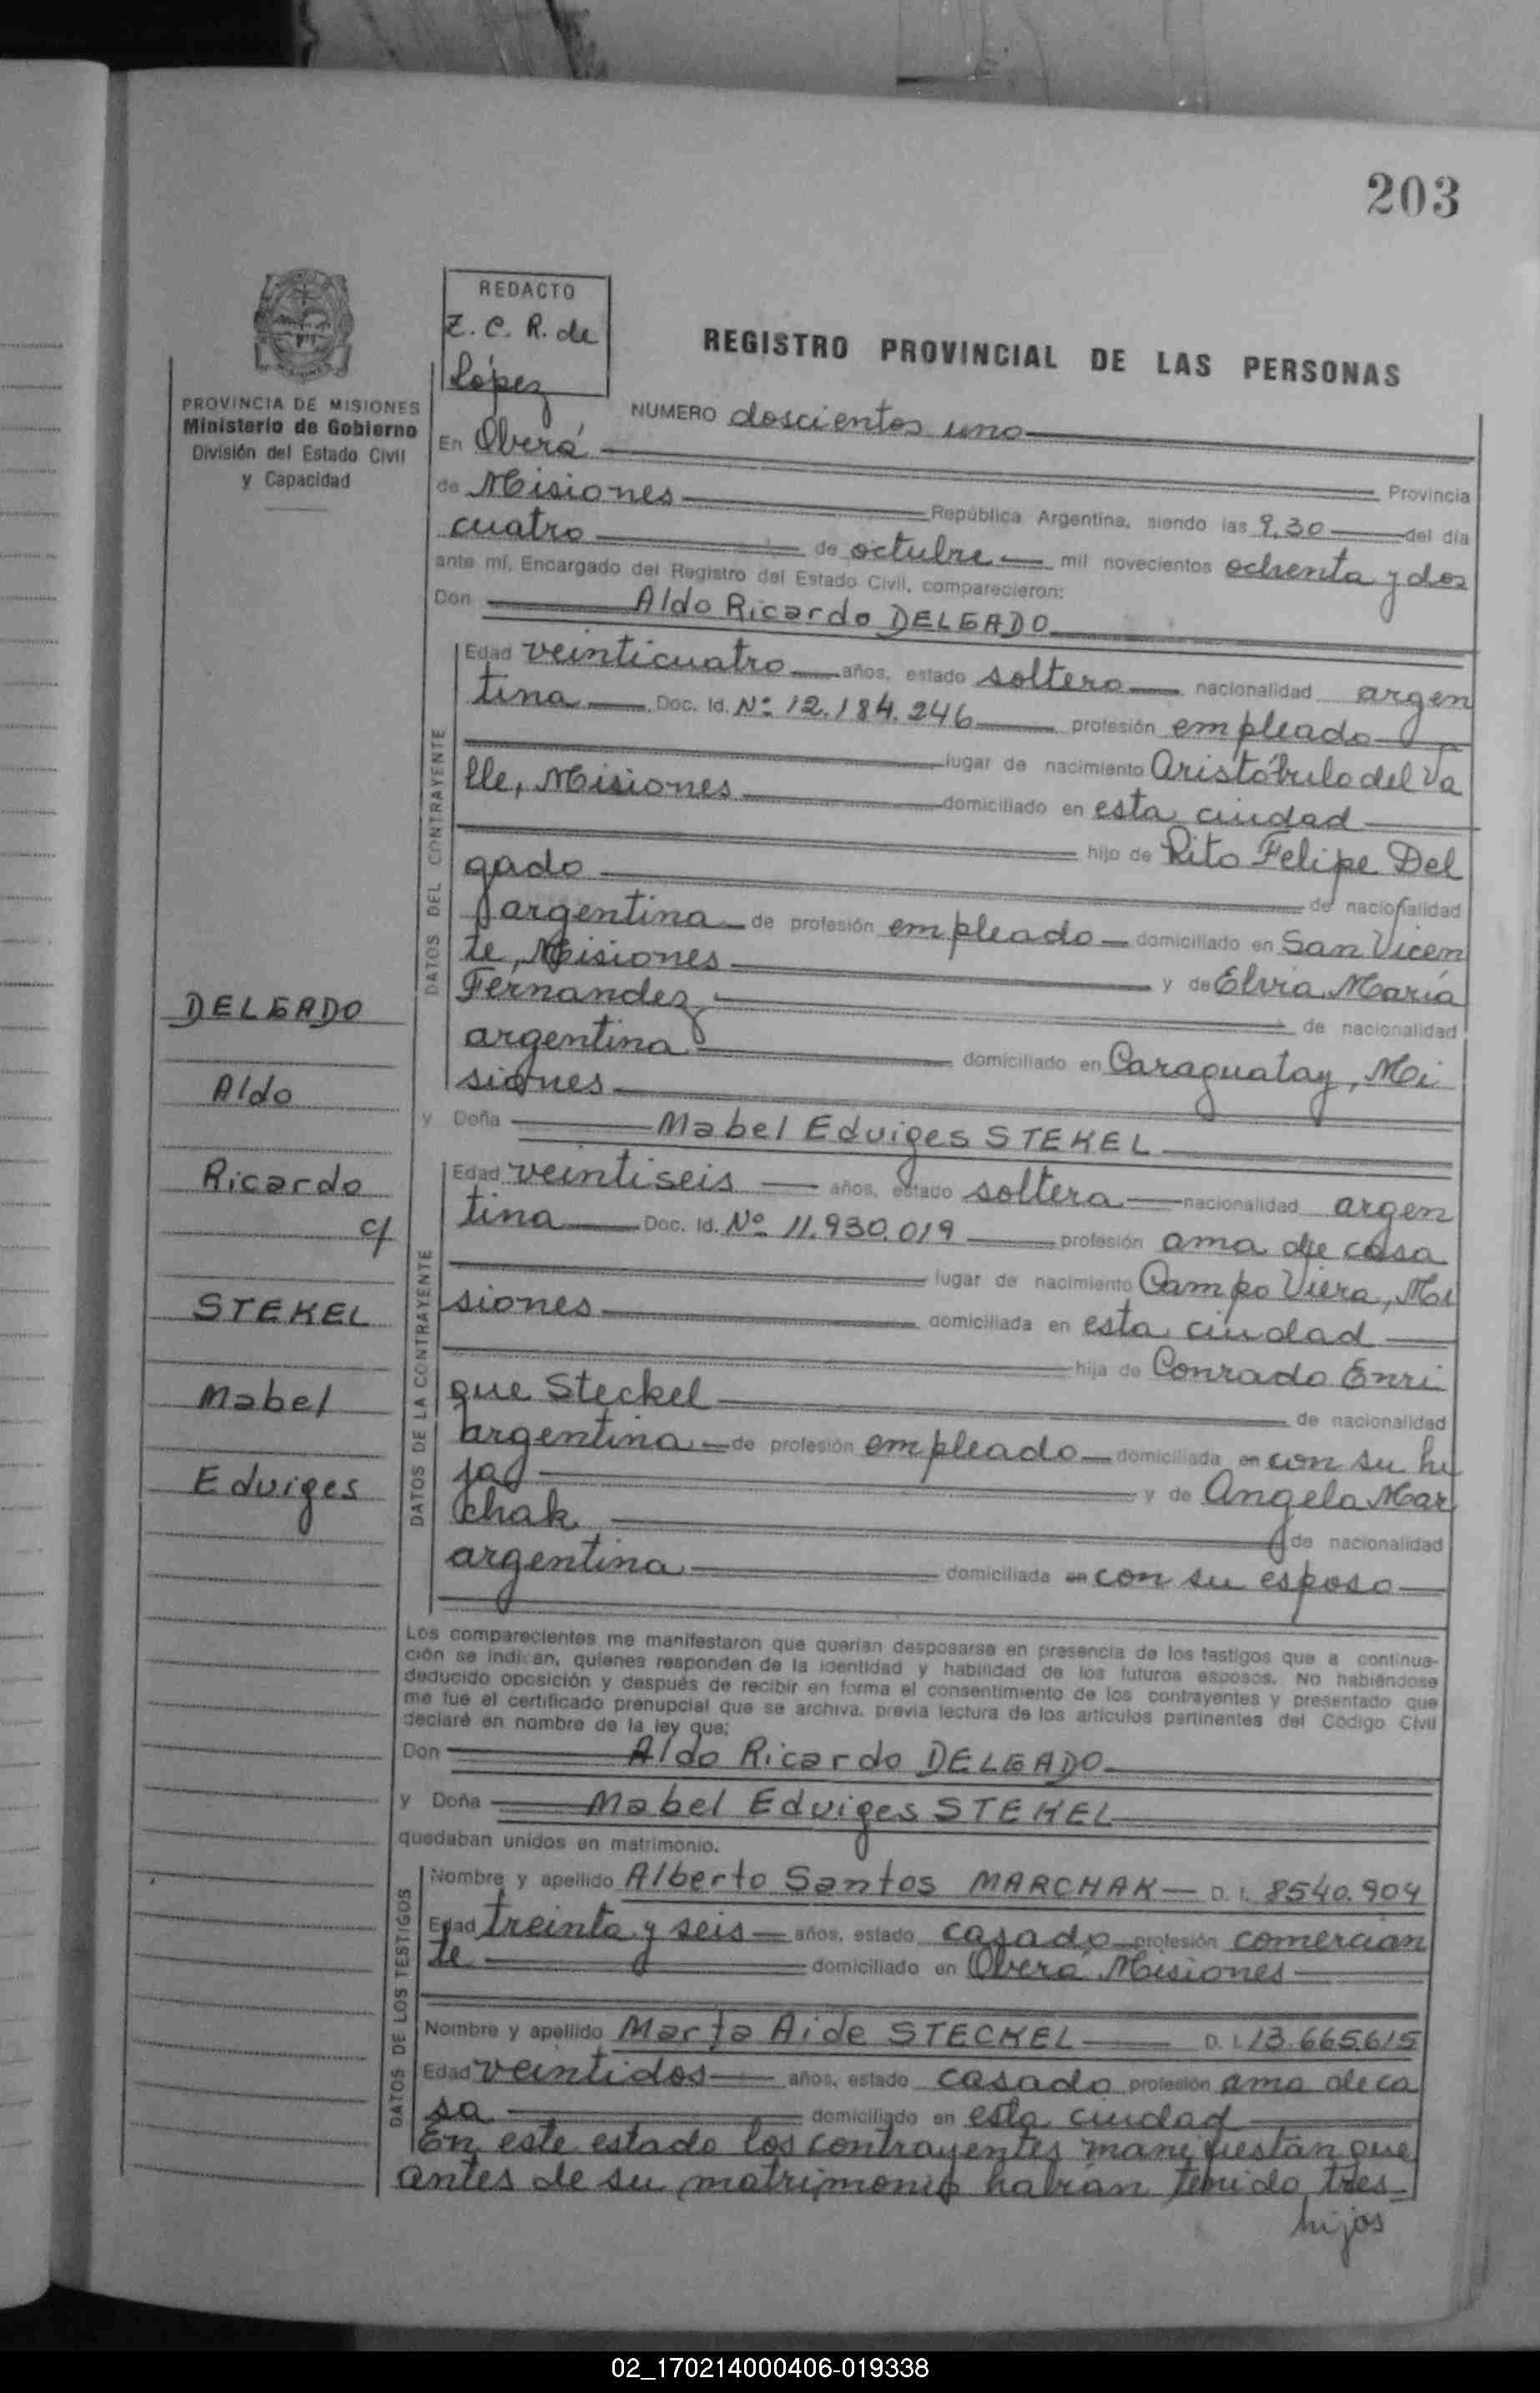 203
REDACTO
Z. C. R. de
López
REGISTRO PROVINCIAL DE LAS PERSONAS
PROVINCIA DE MISIONES
Ministerio de Gobierno
División del Estado Civil
y Capacidad
NUMERO doscientos uno
En Oberá
Provincia
de Misiones República Argentina, siendo las 9,30 del día
cuatro de octubre mil novecientos ochenta y dos
ante mí, Encargado del Registro del Estado Civil, comparecieron:
Don Aldo Ricardo DELGADO
DATOS DEL CONTRAYENTE
Edad veinticuatro años, estado soltero nacionalidad argen
tina Doc. Id. Nº 12.184.246 profesión empleado
lugar de nacimiento Aristóbulo del Va
lle, Misiones domiciliado en esta ciudad
hijo de Rito Felipe Del
gado de nacionalidad
argentina de profesión empleado domiciliado en San Vicen
te, Misiones y de Elvia María
Fernandez de nacionalidad
argentina domiciliado en Caraguatay, Mi
siones
y Doña Mabel Eduiges STEKEL
DATOS DE LA CONTRAYENTE
Edad veintiseis años, estado soltera nacionalidad argen
tina Doc. Id. Nº 11.930.019 profesión ama de casa
lugar de nacimiento Campo Viera, Mi
siones domiciliada en esta ciudad
hija de Conrado Enri
que Steckel de nacionalidad
argentina de profesión empleado domiciliada en con su hi
ja y de Angela Mar
chak de nacionalidad
argentina domiciliada en con su esposo
DELGADO
Aldo
Ricardo
c/
STEKEL
Mabel
Eduiges
Los comparecientes me manifestaron que querían desposarse en presencia de los testigos que a continua-
ción se indican, quienes responden de la identidad y habilidad de los futuros esposos. No habiéndose
deducido oposición y después de recibir en forma el consentimiento de los contrayentes y presentado que
me fue el certificado prenupcial que se archiva, previa lectura de los artículos pertinentes del Código Civil
declaré en nombre de la ley que:
Don Aldo Ricardo DELGADO
y Doña Mabel Eduiges STEKEL
quedaban unidos en matrimonio.
DATOS DE LOS TESTIGOS
Nombre y apellido Alberto Santos MARCHAK D. I. 8540.904
Edad treinta y seis años, estado casado profesión comercian
te domiciliado en Oberá Misiones
Nombre y apellido Marta Aide STECKEL D. I. 13.665.615
Edad veintidos años, estado casada profesión ama de ca
sa domiciliado en esta ciudad
En este estado los contrayentes manifiestan que
antes de su matrimonio habían tenido tres
hijos
02_170214000406-019338